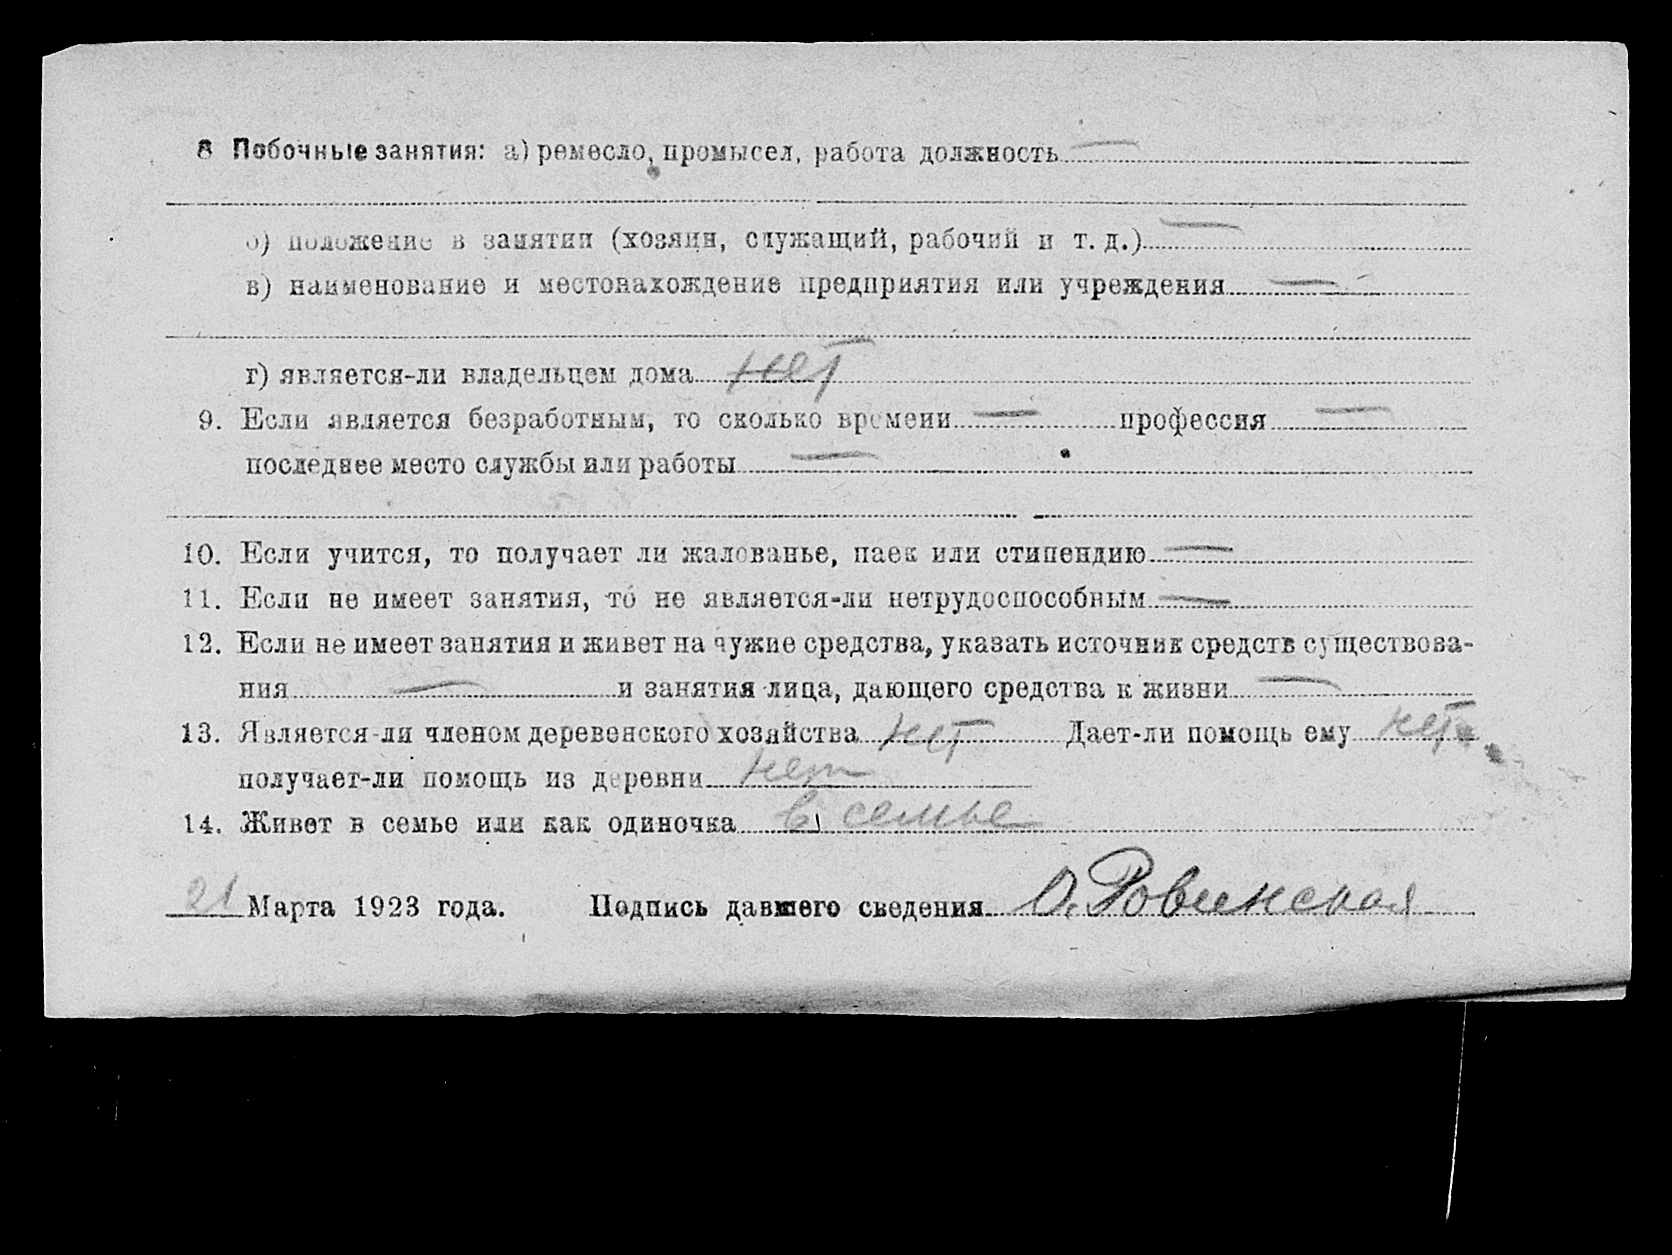 8 Побочные занятия: а) ремесло, промысел, работа должность —
б) положение в занятии (хозяин, служащий, рабочий и т. д.) —
в) наименование и местонахождение предприятия или учреждения —
г) является-ли владельцем дома нет
9. Если является безработным, то сколько времени — профессия —
последнее место службы или работы —
10. Если учится, то получает ли жалованье, паек или стипендию —
11. Если не имеет занятия, то не является-ли нетрудоспособным —
12. Если не имеет занятия и живет на чужие средства, указать источник средств существова-
ния — и занятия лица, дающего средства к жизни —
13. Является-ли членом деревенского хозяйства нет Дает-ли помощь ему нет
получает-ли помощь из деревни нет
14. Живет в семье или как одиночка в семье
21 Марта 1923 года. Подпись давшего сведения О. Ровинская